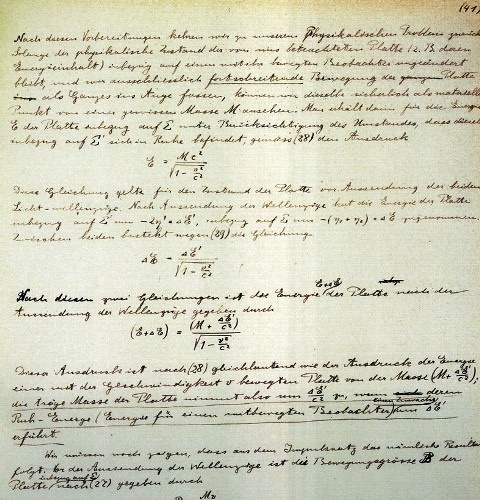 (41)
Nach diesen Vorbereitungen kehren wir zu unserem physikalischen Problem zurück
Solange der physikalische Zustand der von uns betrachteten Platte (z. B. deren
Energieinhalt) inbezug auf einen mit ihr bewegten Beobachter ungeändert
bleibt, und wir ausschliesslich fortschreitende Bewegung der Platte
als Ganzes ins Auge fassen, können wir dieselbe sicherlich als materiellen
Punkt von einer gewissen Masse M ansehen. Man erhält dann für die Energie
E der Platte inbezug auf Σ unter Berücksichtigung des Umstandes, dass dieselbe
inbezug auf Σ' sich in Ruhe befindet, gemäss (28) den Ausdruck
E = Mc² / √(1 - v²/c²)
Diese Gleichung gilt für den Zustand der Platte vor Aussendung der beiden
Licht-wellenzüge. Nach Aussendung der Wellenzüge hat die Energie der Platte
inbezug auf Σ' um -2η' = ΔE', inbezug auf Σ um -(η₁ + η₂) = ΔE zugenommen.
Zwischen beiden besteht wegen (29) die Gleichung
ΔE = ΔE' / √(1 - v²/c²)
Nach diesen zwei Gleichungen ist die Energie E+ΔE der Platte nach der
Aussendung der Wellenzüge gegeben durch
(E+ΔE) = (M + ΔE'/c²)c² / √(1 - v²/c²)
Dieser Ausdruck ist nach (28) gleichlautend wie der Ausdruck der Energie
einer mit der Geschwindigkeit v bewegten Platte von der Masse (M + ΔE'/c²);
die träge Masse der Platte nimmt also um ΔE'/c² zu, wenn deren
Ruh-Energie (Energie für einen mitbewegten Beobachter) um ΔE'
erfährt
Wir müssen noch zeigen, dass aus dem Impulssatz das nämliche Resultat
folgt. Vor der Aussendung der Wellenzüge ist die Bewegungsgrösse B der
Platte inbezug auf Σ nach (27) gegeben durch
Mv